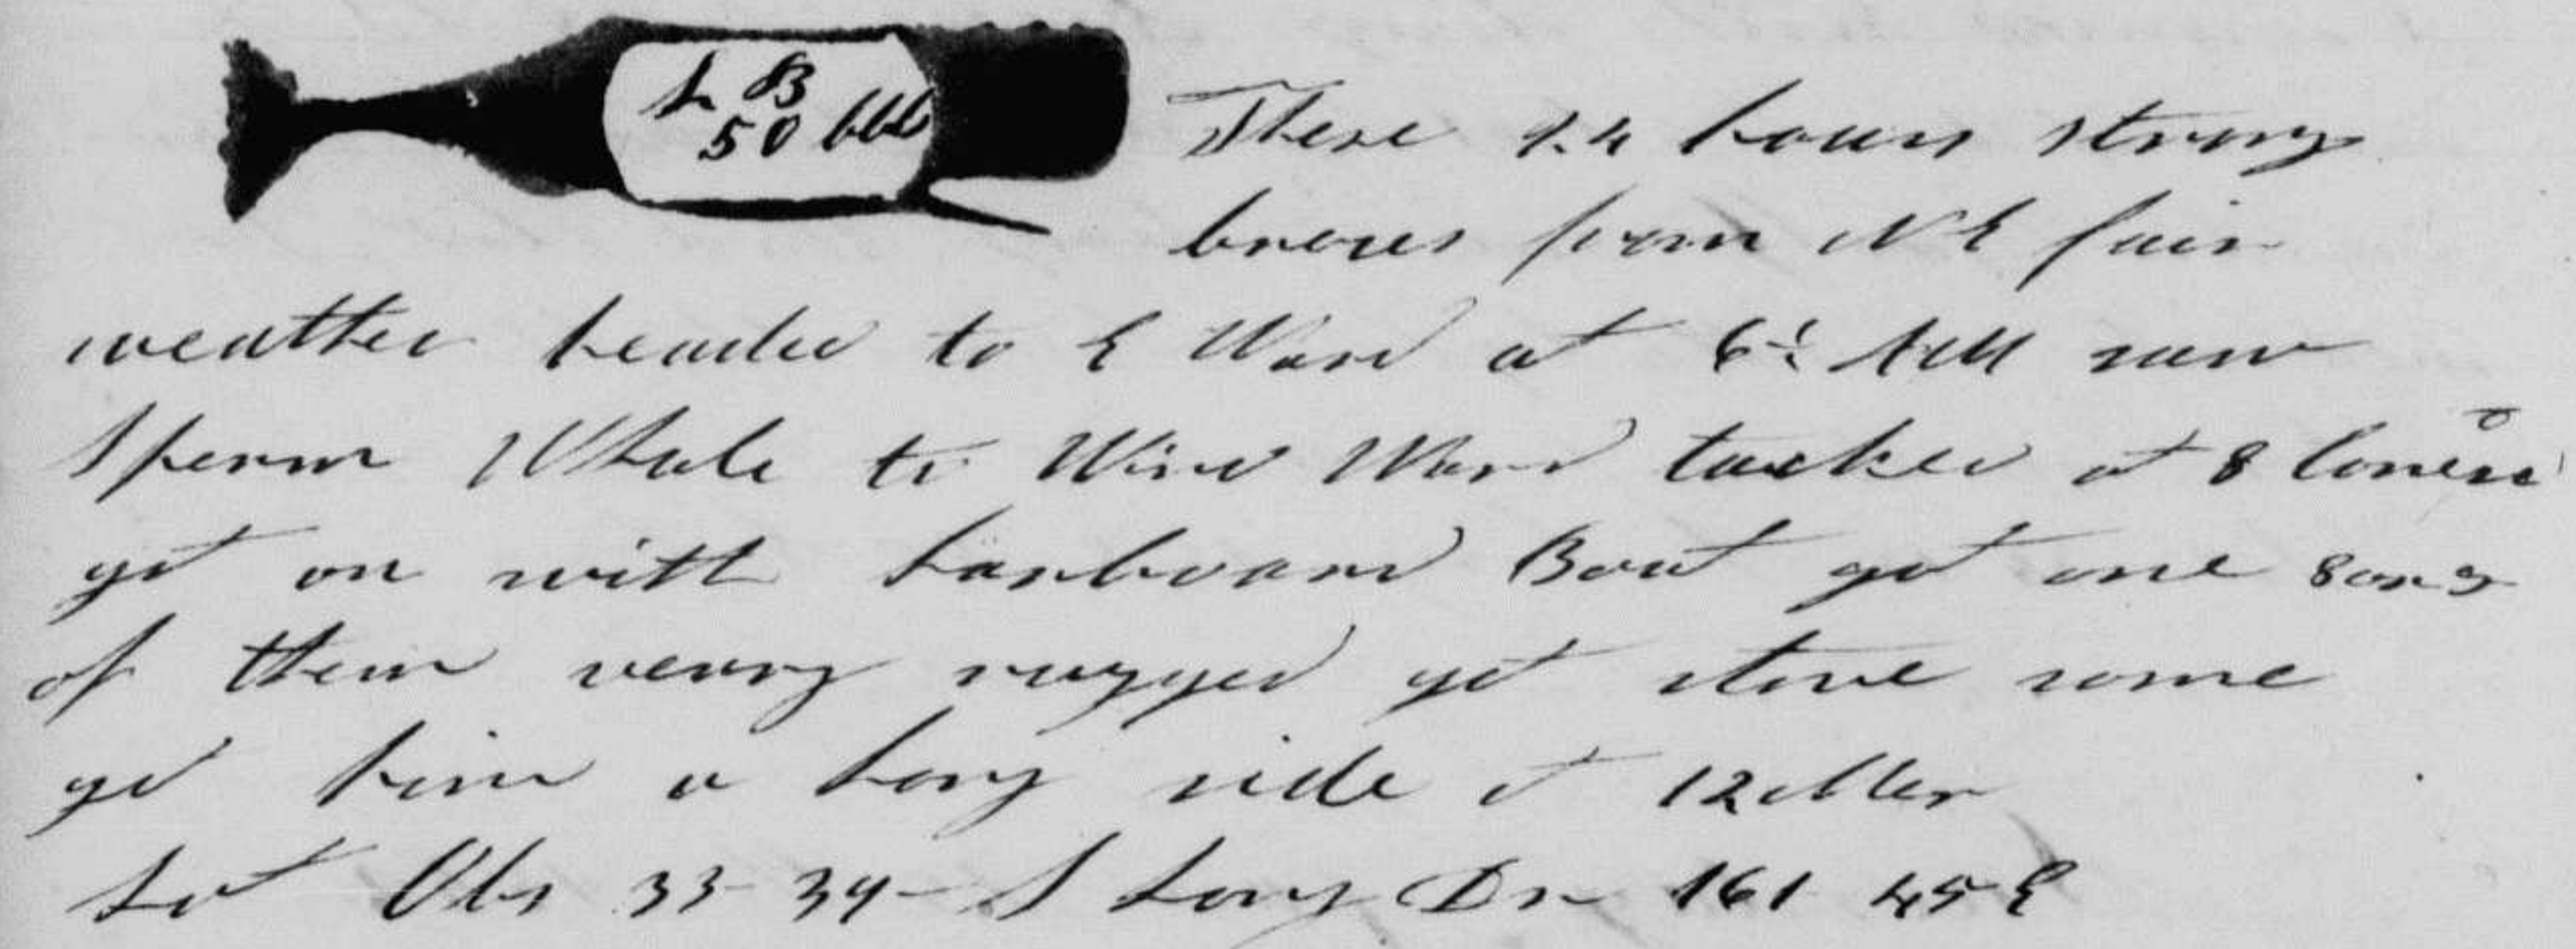 L B
50 bbl
These 24 hours strong
breses from N E fair
weather headed to E Ward at 6½ AM saw
Sperm Whale to Wind Ward tacked at 8 lowered
got on with Larboard Boat got one
of them verry rugged got stove some
got him a long side at 12 Mer
Lat Obs 33-34- S Long Dr 161 45 E